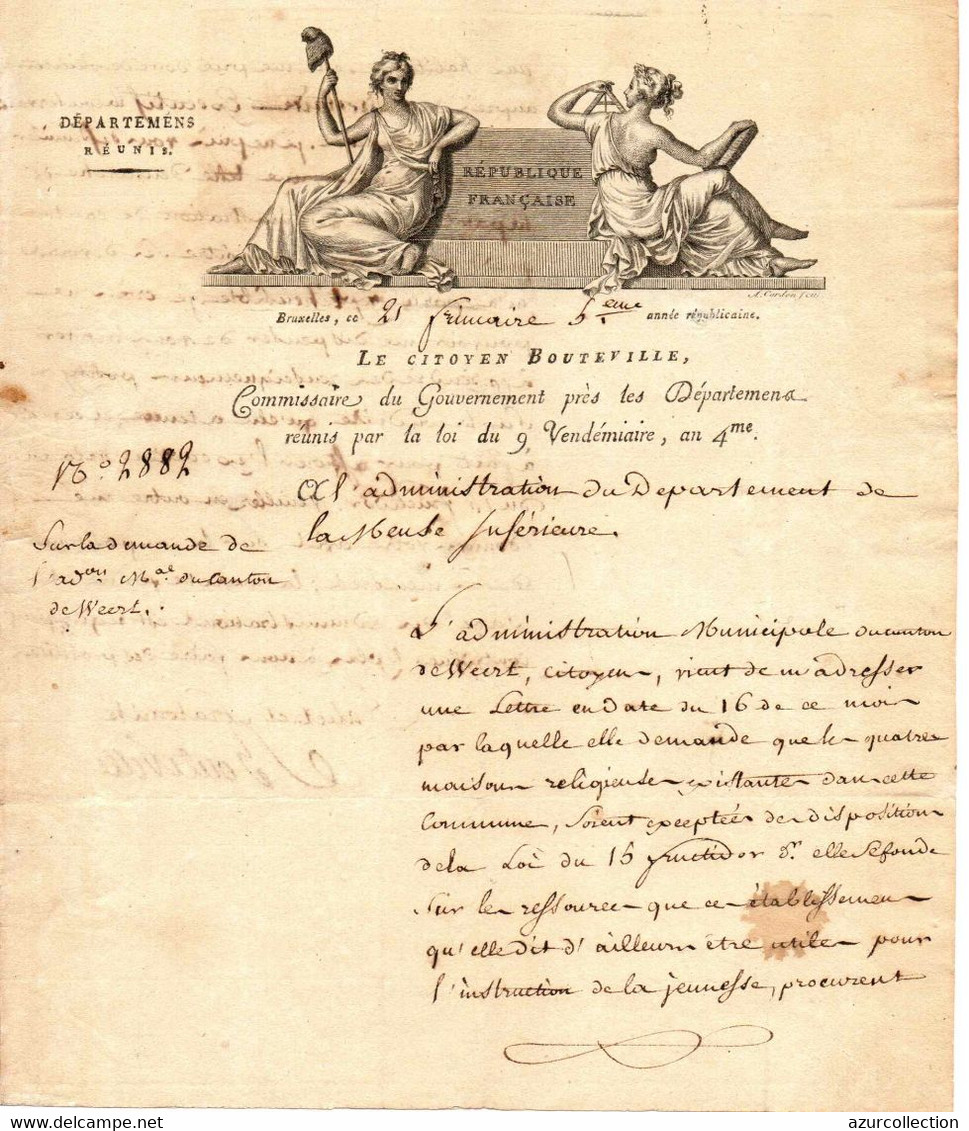 DÉPARTEMENS
RÉUNIS.
RÉPUBLIQUE
FRANÇAISE
A. Cardon fecit
Bruxelles, ce 21 frimaire 5.eme année républicaine.
LE CITOYEN BOUTEVILLE,
Commissaire du Gouvernement près les Départemens
réunis par la loi du 9 Vendémiaire, an 4me.
N.o 2882
A l'administration du Departement de
la Meuse Inférieure.
Sur la demande de
l'adon. Male du Canton
de Weert.
L'administration Municipale du canton
de Weert, citoyens, vient de m'adresser
une Lettre en Date du 16 de ce mois
par laquelle elle demande que les quatre
maisons religieuses existantes dans cette
Commune, soient exceptées des disposition
de la Loi du 15 fructidor dr. elle se fonde
sur les ressources que ces établissemens
qu'elle dit d'ailleurs être utiles pour
l'instruction de la jeunesse, procurent
azurcollection